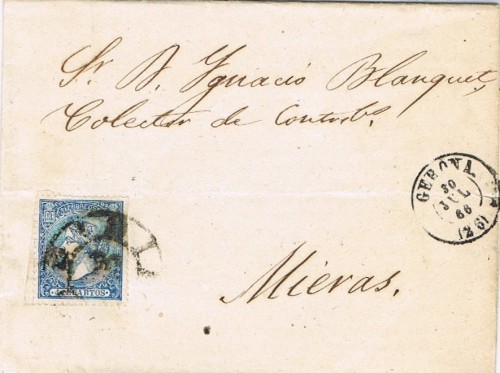 Sr. D. Ignacio Blanquet,
Colector de Contrib.s
GERONA.
30
JUL
66
(26)
CUARTOS
Mieras.